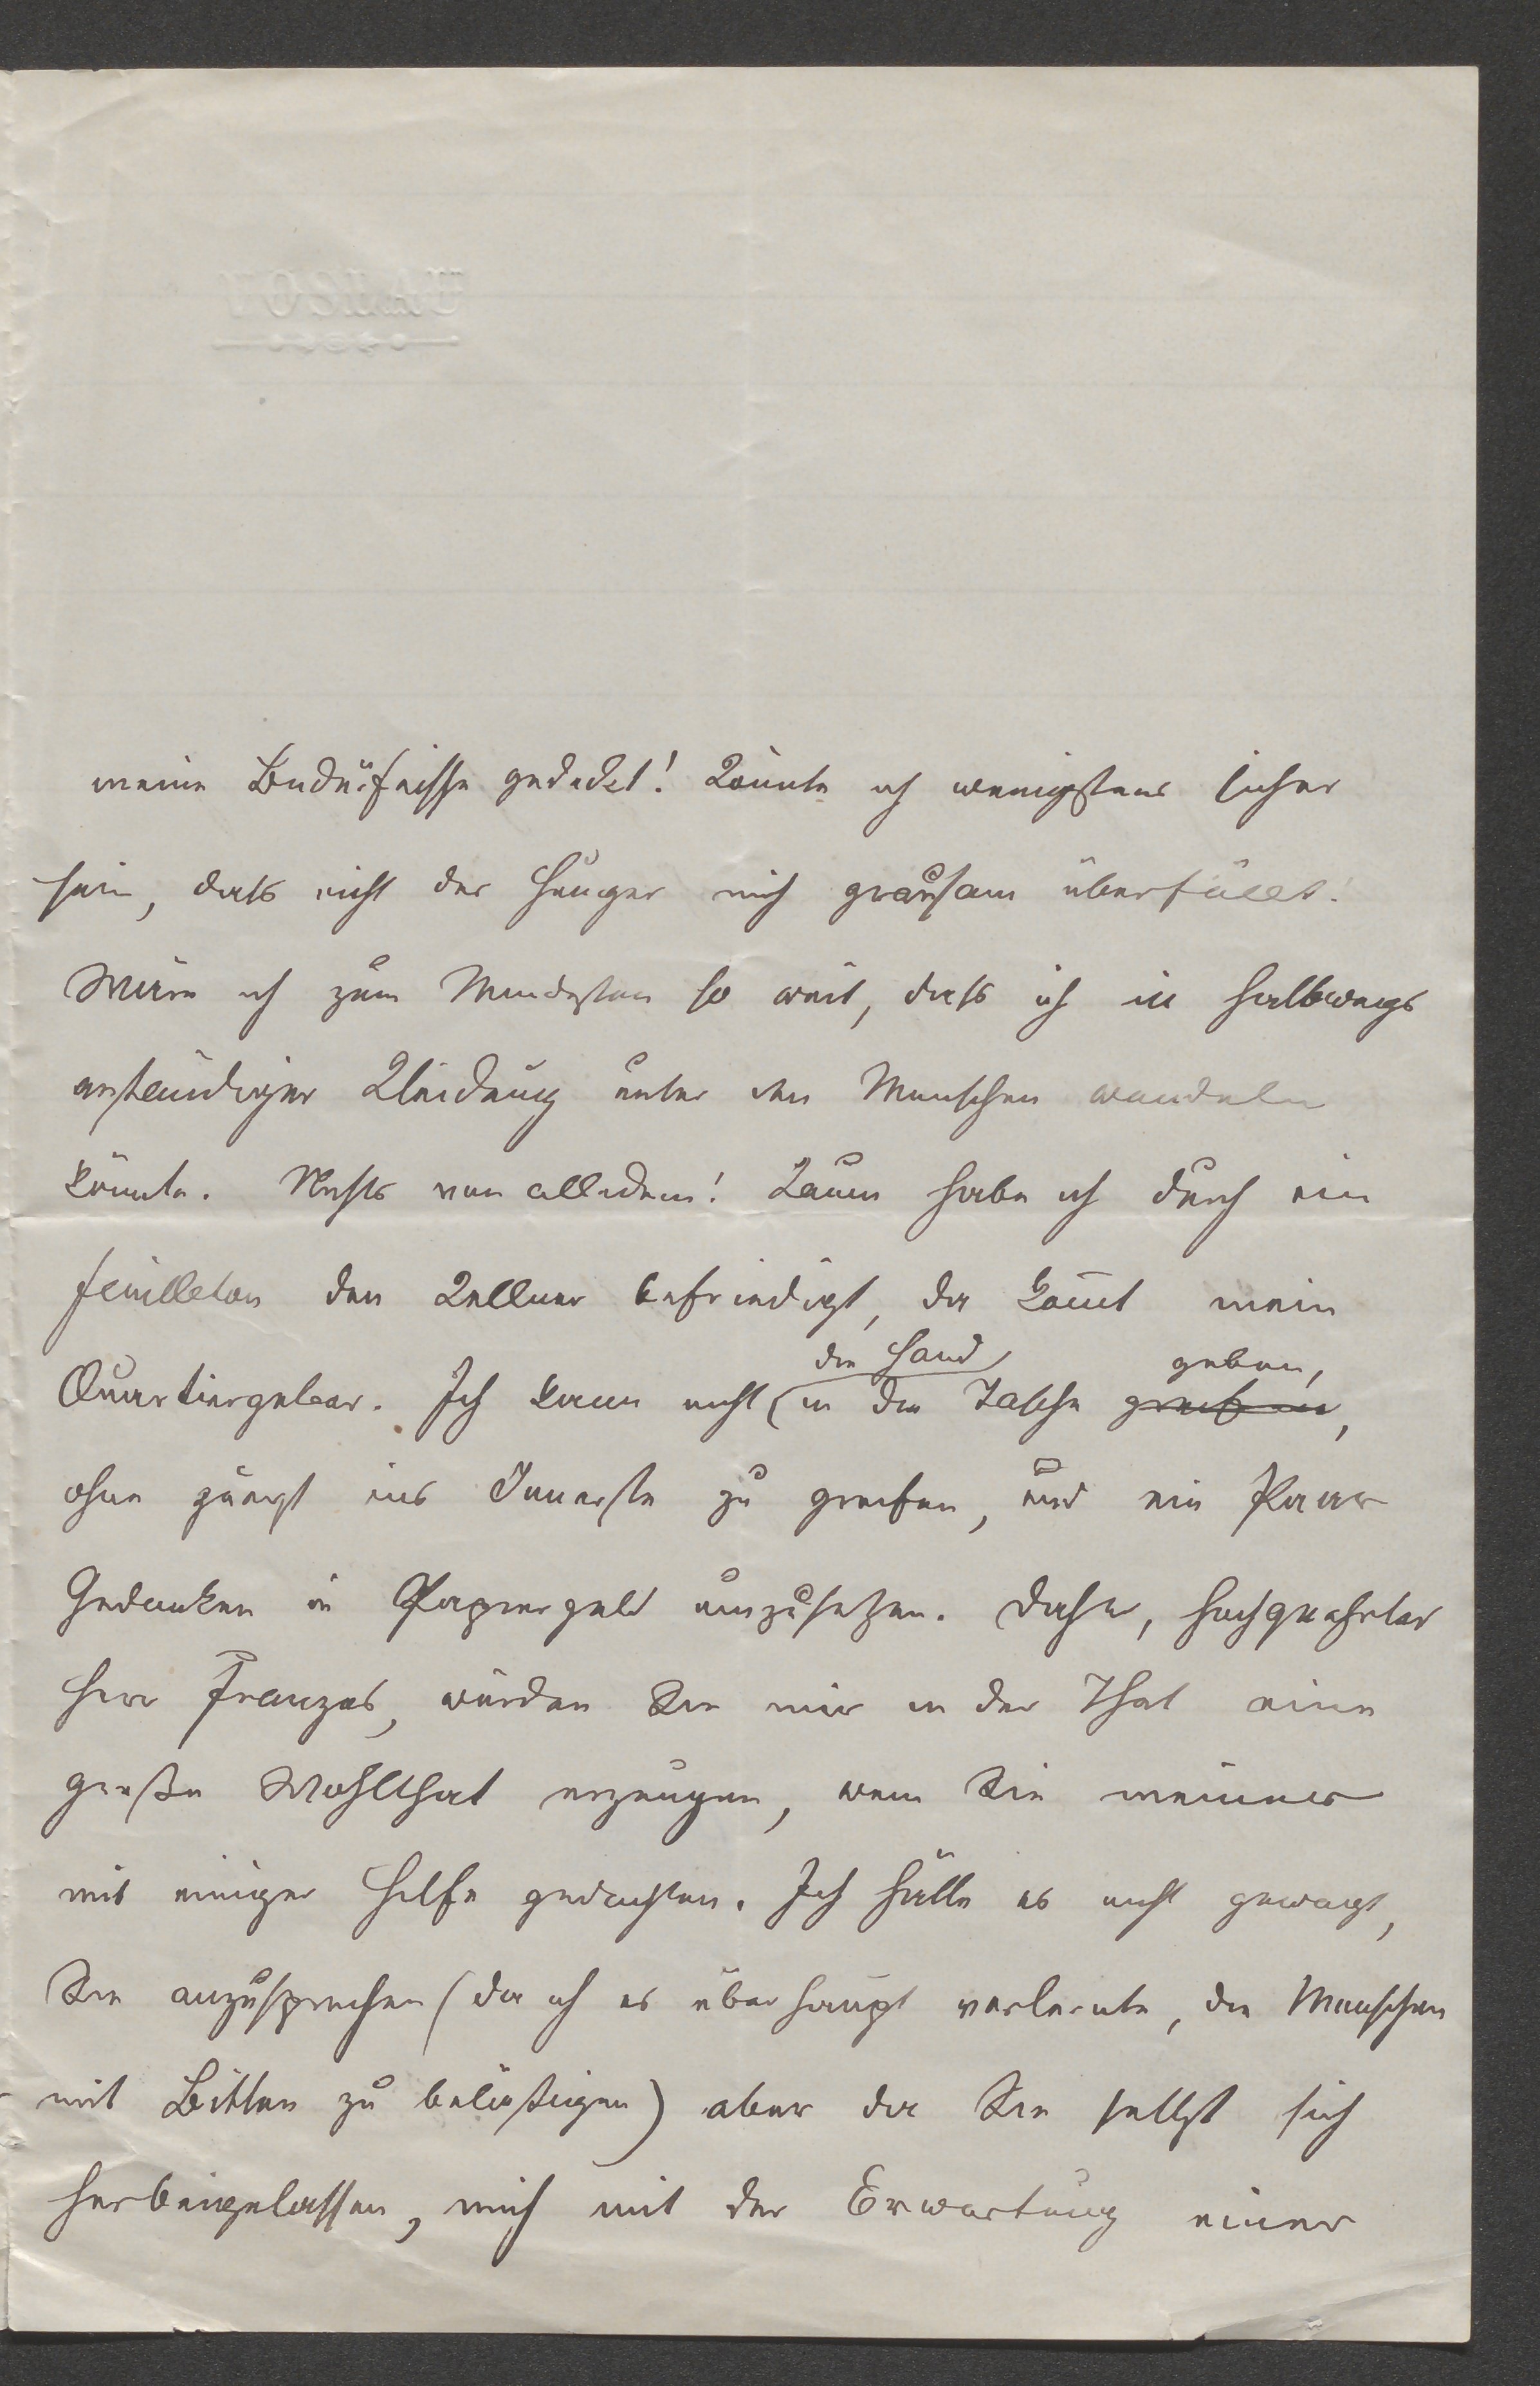 VÖSLAU
meine Bedürfnisse gedeckt! Könnte ich wenigstens sicher
sein, dass nicht der Hunger mich grausam überfällt!
Wäre ich zum Mindesten so weit, dass ich in halbwegs
anständiger Kleidung unter den Menschen wandeln
könnte. Nichts von alledem! Kaum habe ich durch ein
Feuilleton den Kellner befriedigt, da kom̅t mein
die Hand geben,
Quartiergeber. Ich kann nicht in die Tasche greifen,
ohne zuerst ins Innerste zu greifen, und ein Paar
Gedanken in Papiergeld umzusetzen. Daher, hochgeehrter
Herr Franzos, würden Sie mir in der That eine
große Wohlthat erzeugen, wenn Sie meiner
mit einiger Hilfe gedächten. Ich hätte es nicht gewagt,
Sie anzusprechen (da ich es überhaupt verlernte, die Menschen
mit Bitten zu belästigen) aber da Sie selbst sich
herbeigelassen, mich mit der Erwartung einer